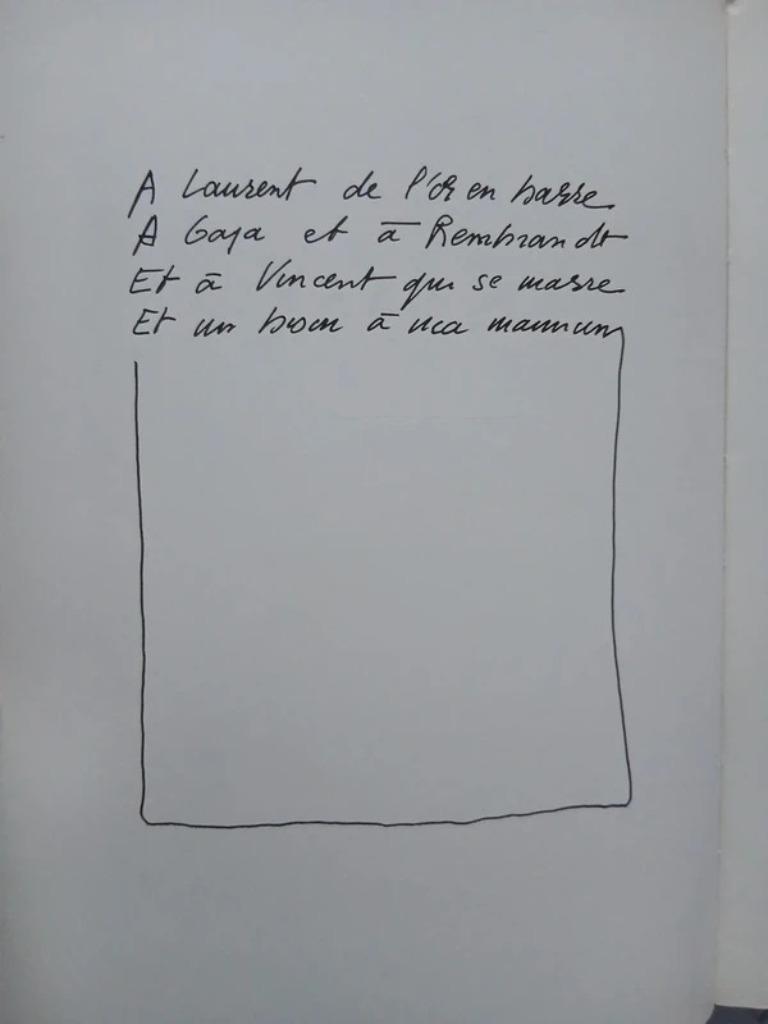 A Laurent de l'or en barre
A Goya et à Rembrandt
Et à Vincent qui se marre
Et un bon à ma maman